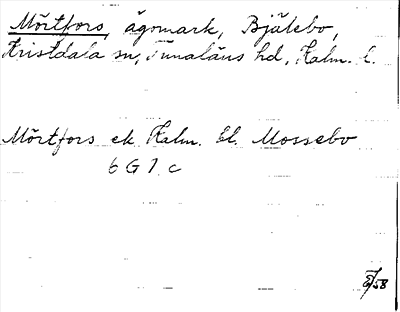 Mörtfors, ägomark, Bjälebo,
Kristdala sn, Tunaläns hd, Kalm. l.
Mörtfors ek Kalm. bl. Mossebo
6 G 1 c
/58